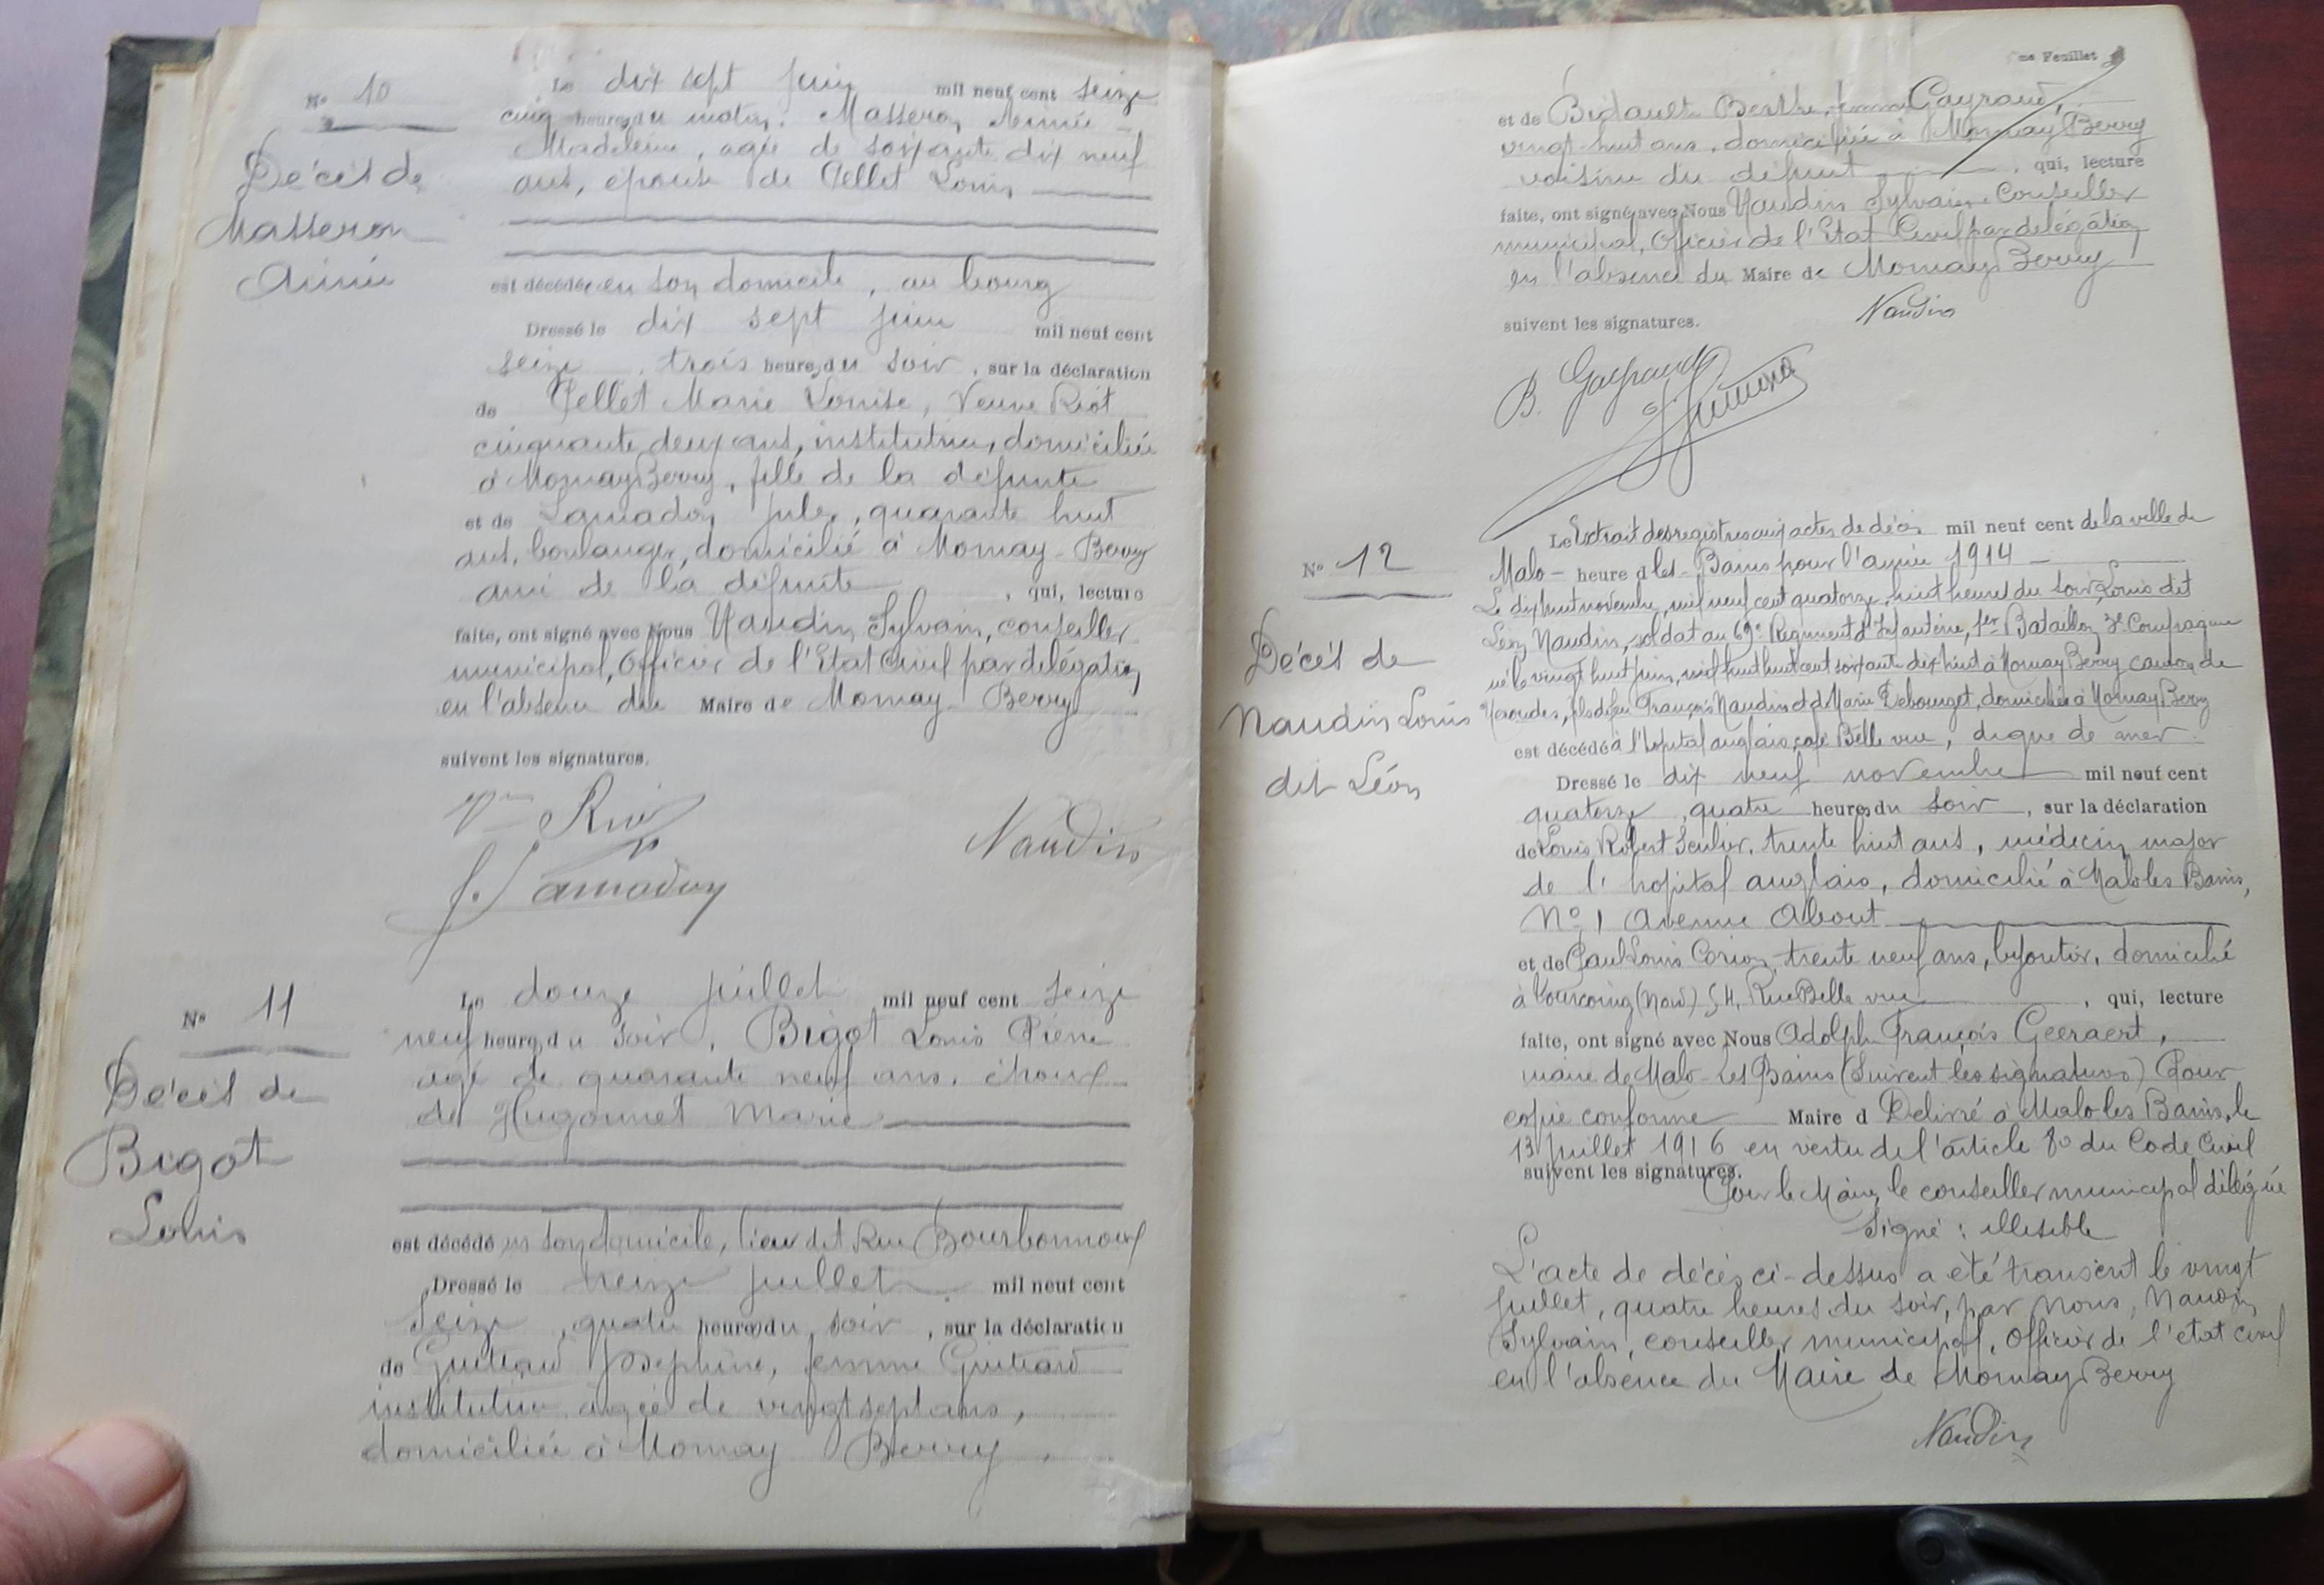 N° 10
Décès de
Masseron
Aimée
Le dix sept juin mil neuf cent seize
cinq heures du matin. Masseron Aimée
Madeleine, agée de soixante dix neuf
ans, épouse de Pellet Louis
est décédée en son domicile, au bourg
Dressé le dix sept juin mil neuf cent
seize, trois heures du soir, sur la déclaration
de Pellet Marie Louise, Veuve Riot
cinquante deux ans, institutrice, domiciliée
à Mornay Berry, fille de la défunte
et de Lamadon Jules, quarante huit
ans, boulanger, domicilié à Mornay-Berry
ami de la défunte, qui, lecture
faite, ont signé avec Nous Naudin Sylvain, conseiller
municipal, Officier de l'Etat Civil par délégation
en l'absence du Maire de Mornay-Berry
suivent les signatures.
Vve Riot
Naudin
J. Lamadon
N° 11
Décès de
Bigot
Louis
Le douze juillet mil neuf cent seize
neuf heures du soir, Bigot Louis Pierre
agé de quarante neuf ans, époux
de Hugonnet Marie
est décédé en son domicile, lieu dit Rue Bourbonnoux
Dressé le treize juillet mil neuf cent
seize, quatre heures du soir, sur la déclaration
de Joséphine, femme
institutrice agée de vingt sept ans,
domiciliée à Mornay Berry,
me Feuillet
et de Bidault Berthe, femme Gayraud,
vingt-huit ans, domiciliée à Mornay Berry
voisine du défunt, qui, lecture
faite, ont signé avec Nous Naudin Sylvain, Conseiller
municipal, Officier de l'Etat Civil par délégation
en l'absence du Maire de Mornay Berry
Naudin
suivent les signatures.
B. Gayraud
N° 12
Décès de
Naudin Louis
dit Léon
Le Extrait des registres aux actes de décès mil neuf cent de la ville de
Malo - heure d les - Bains pour l'année 1914
Le dix huit novembre, mil neuf cent quatorze, huit heures du soir, Louis dit
Léon Naudin, soldat au 69e Régiment d'Infanterie, 1er Bataillon, 3e Compagnie
né le vingt huit juin, mil huit huit cent soixante dix huit à Mornay Berry canton de
Nérondes, fils de feu François Naudin et de Marie Debourget, domiciliés à Mornay Berry
est décédé à l'hopital anglais, café Belle vue, digue de mer.
Dressé le dix neuf novembre mil neuf cent
quatorze, quatre heures du soir, sur la déclaration
de Louis Robert, trente huit ans, médecin major
de l'hopital anglais, domicilié à Malo les Bains,
N° 1 Avenue About
et de Paul Louis Corion, trente neuf ans, bijoutier, domicilié
à Tourcoing (Nord) 54, Rue Belle vue, qui, lecture
faite, ont signé avec Nous Adolphe François Geeraert,
maire de Malo-les Bains (Suivent les signatures) Pour
copie conforme Maire d Délivré à Malo les Bains, le
13 juillet 1916 en vertu de l'article 80 du Code Civil
suivent les signatures.
Pour le Maire, le conseiller municipal délégué
Signé : illisible
L'acte de décès ci-dessus a été transcrit le vingt
juillet, quatre heures du soir, par nous, Naudin
Sylvain, conseiller municipal, Officier de l'état civil
en l'absence du Maire de Mornay Berry
Naudin